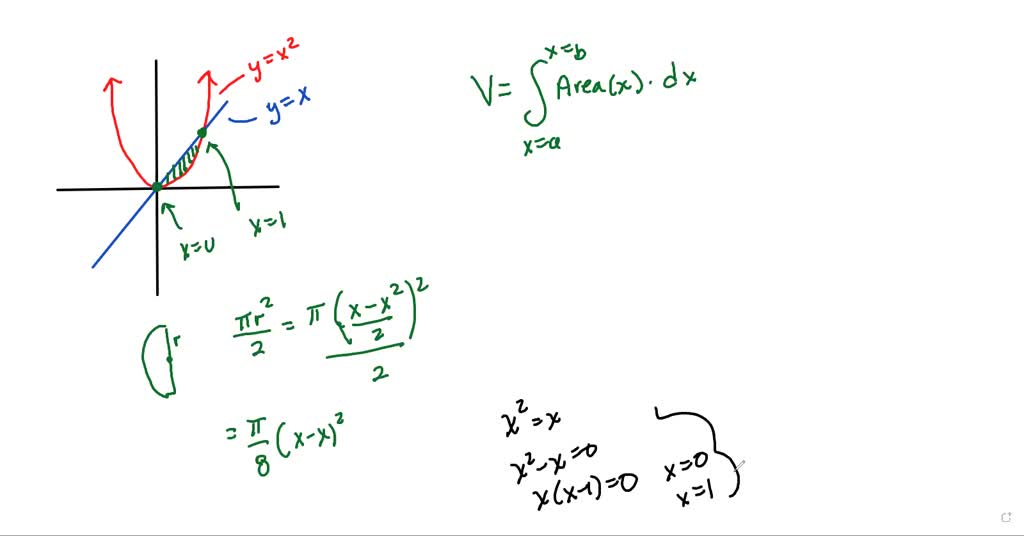 y=x²
y=x
x=0
x=1
V=∫ₓ₌ₐ^(x=b) Area(x)·dx
r
πr²/2 = π((x-x²)/2)²/2
=π/8(x-x)²
x²=x
x²-x=0
x(x-1)=0
x=0
x=1